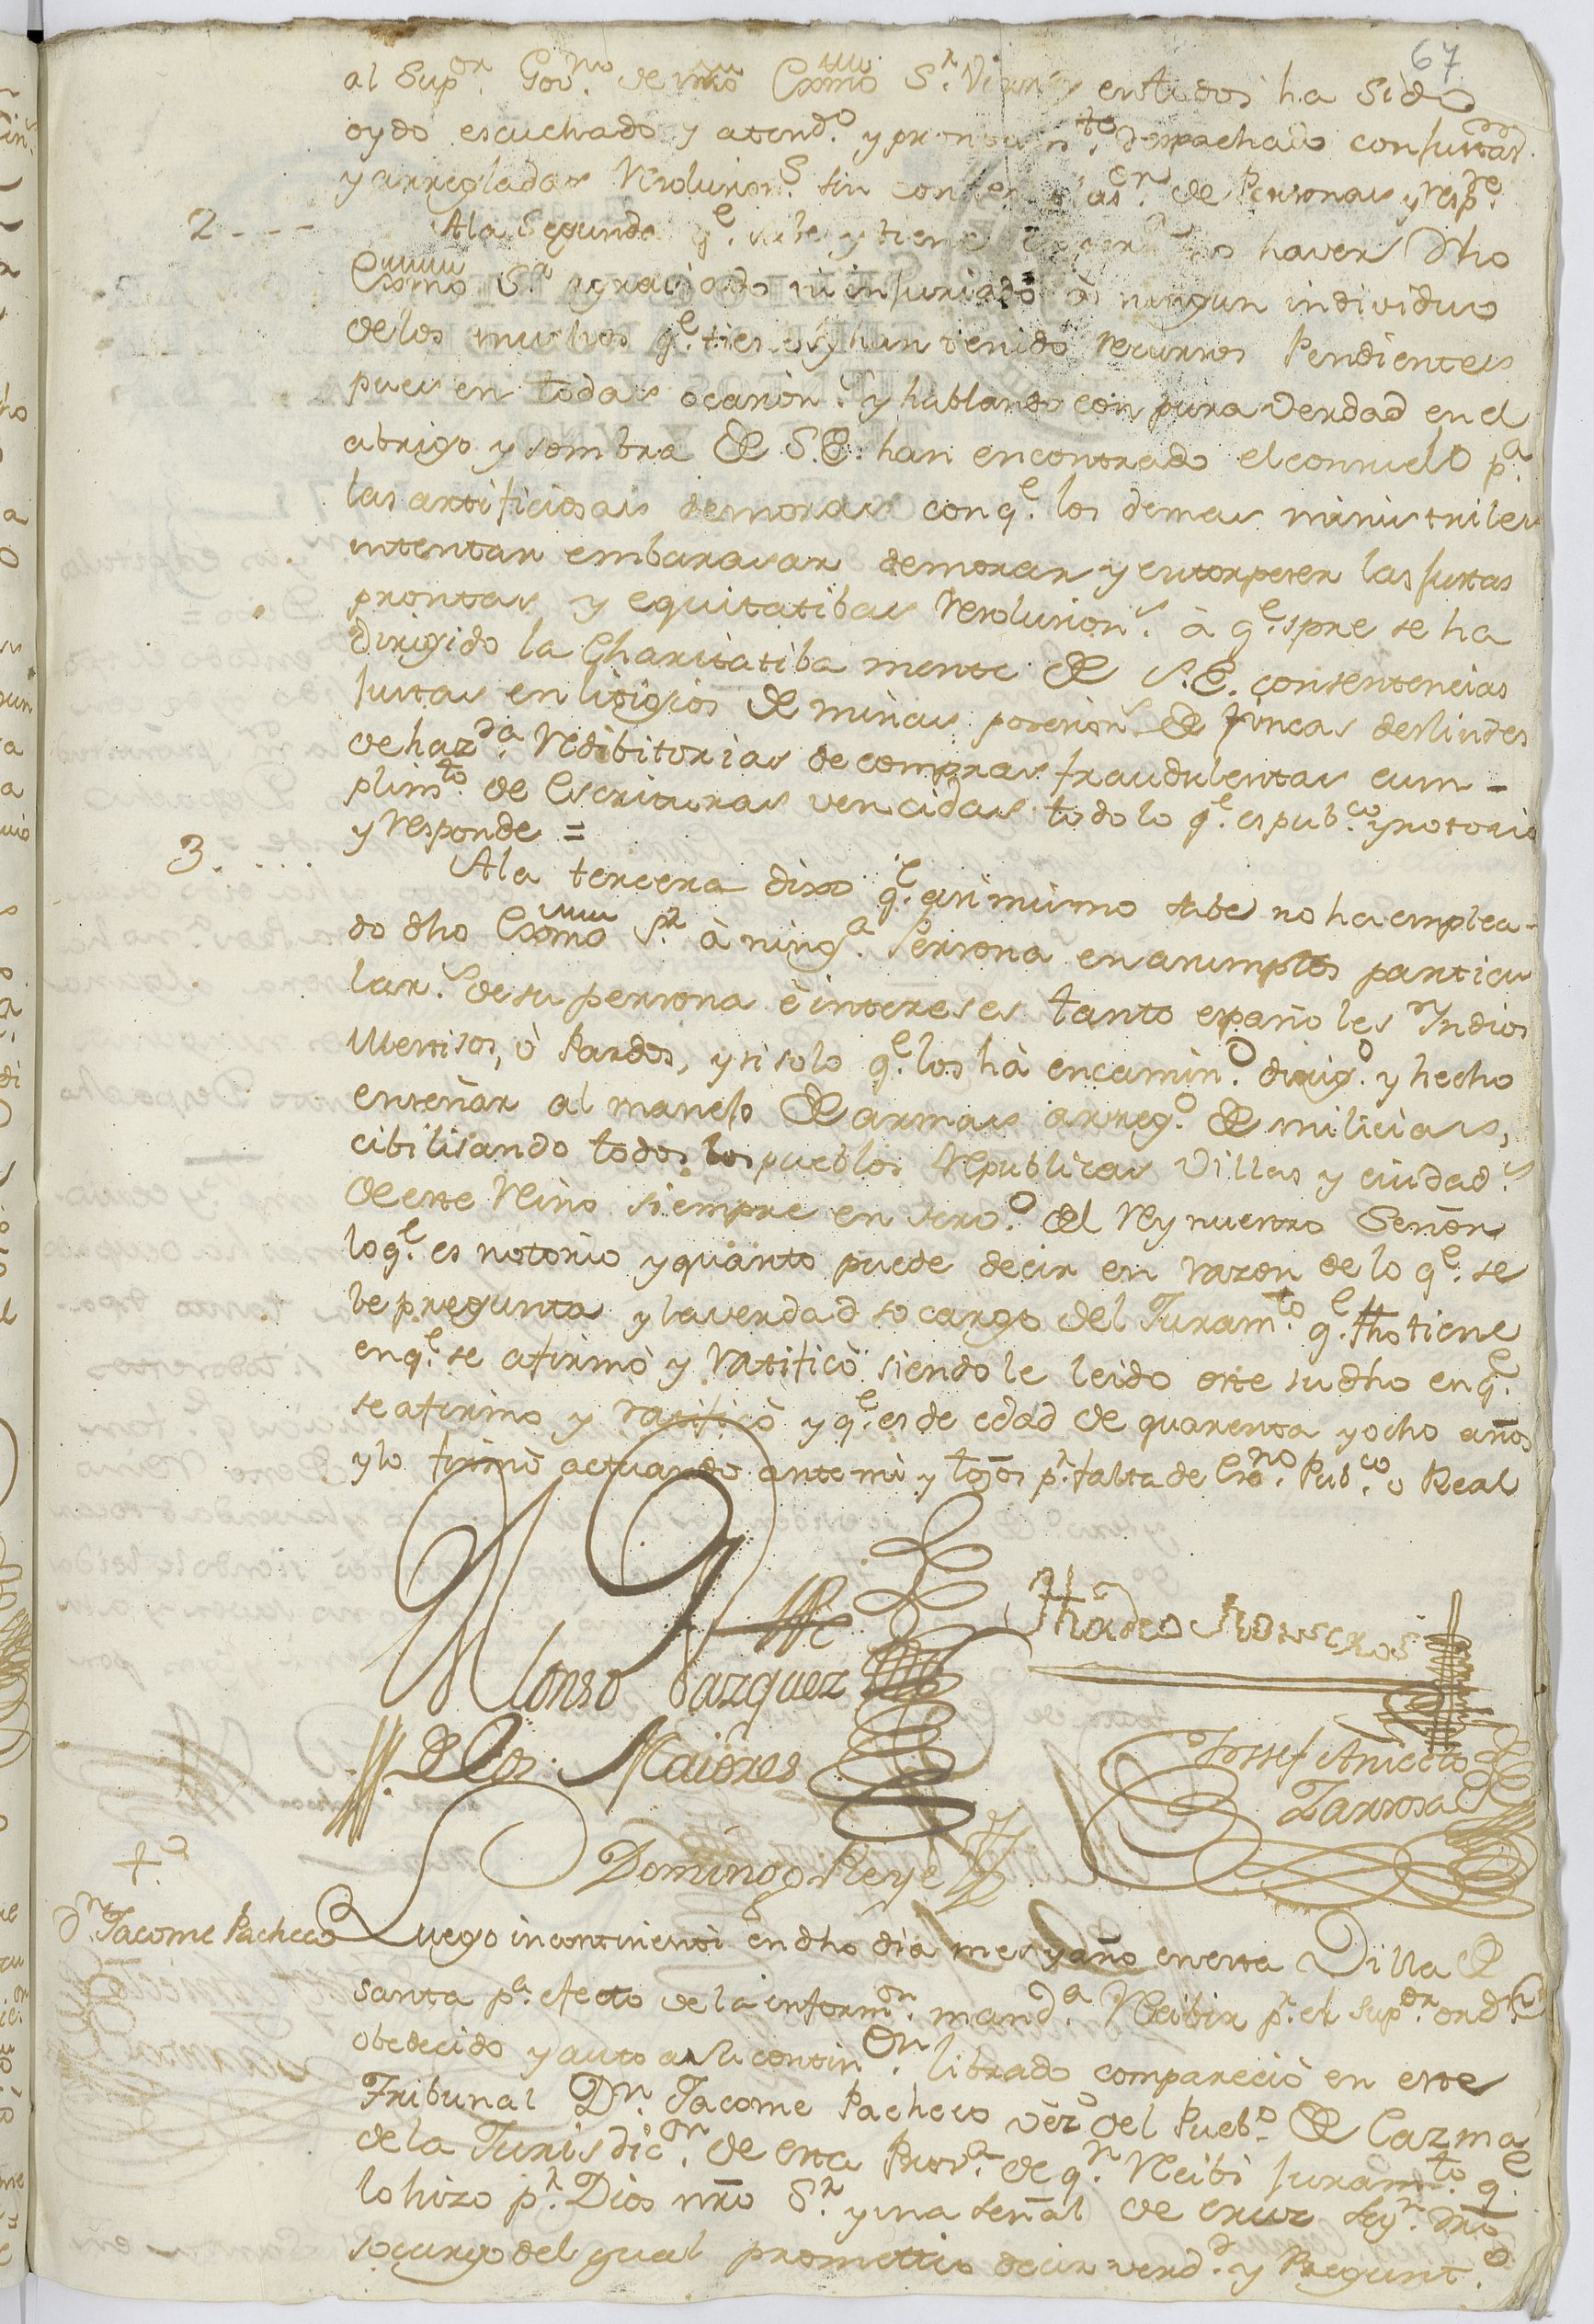 67
al Sup.or Gov.no de nro Exmo S.r Virrey en todos ha sido
oydo escuchado y atend.o y prontam.te despachado con justas
y arregladas resolucion.s sin de Personas y resp.te
2 - - - A la Segunda q.e sabe y tiene no haver dho
Exmo S.r agraviado ni injuriado à ningun individuo
de los muchos q.e tienen y han tenido recursos Pendientes
pues en todas ocacion.s y hablando con pura verdad en el
abrigo y sombra de S.E. han encontrado el consuelo p.a
las artificiosas demoras con q.e los demas ministriles
intentan embarasar demorar y entorpeser las justas
prontas y equitatibas resolucion.s à q.e spre se ha
dirigido la Charitatiba mente de S.E. con sentencias
justas en litigios de minas posesion.s de fincas deslindes
de haz.da redibitorias de compras fraudulentas cum-
plim.to de Escrituras vencidas todo lo q.e es pub.co y notorio
y responde =
3. . . . A la tercera dixo q.e asi mismo sabe no ha emplea-
do dho Exmo S.r à ning.a Persona en asumptos particu
lar.s de su persona è intereses tanto españoles Indios
Mestisos, ò Pardos, y si solo q.e los hà encamin.o dirig.o y hecho
enseñar al manejo de armas arreg.o de milicias,
cibilisando todos los pueblos Republicas Villas y ciudad.s
de este Reino siempre en serv.o del Rey nuestro Señor
lo q.e es notorio y quanto puede decir en razon de lo q.e se
le pregunta y la verdad so cargo del Juram.to q.e fho tiene
en q.e se afirmò y ratificò siendole leido este su dho en q.e
se afirmo y ratificò y q.e es de edad de quarenta y ocho años
y lo firmò actuando ante mi y tgos p.r falta de Esno. Pub.co o Real
Alonso Vazquez
de los Maiores
Thadeo
Jossef Aniceto
Larrosa
Domingo Reye
+.o
D.n Jacome Pacheco
Luego incontinenti en dho dia mes y año en esta Villa de
santa p.a efecto de la inform.on mand.a Recibir p.r el Sup.or ord.n
obedecido y auto a su contin.on librado compareciò en este
Tribunal D.n Jacome Pacheco vez.o del Pueb.o de Cazma
de la Jurisdic.on de esta Prov.a de q.n Recibi juram.to q.e
lo hizo p.r Dios nro S.r y una señal de cruz seg.n dro
so cargo del qual promettio decir verd.d y Pregunt.o